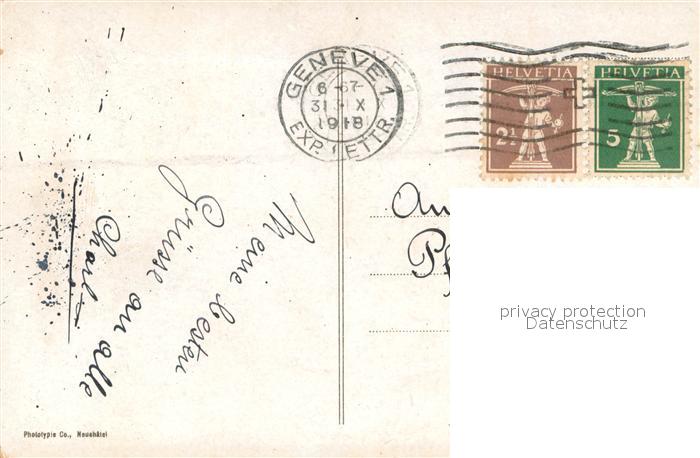 GENEVE 1
6-67-
31 X
1918
EXP. LETTR.
HELVETIA
2½
HELVETIA
5
Meine besten
Grüsse an alle
An
Pf
privacy protection
Datenschutz
Phototypie Co., Neuchâtel